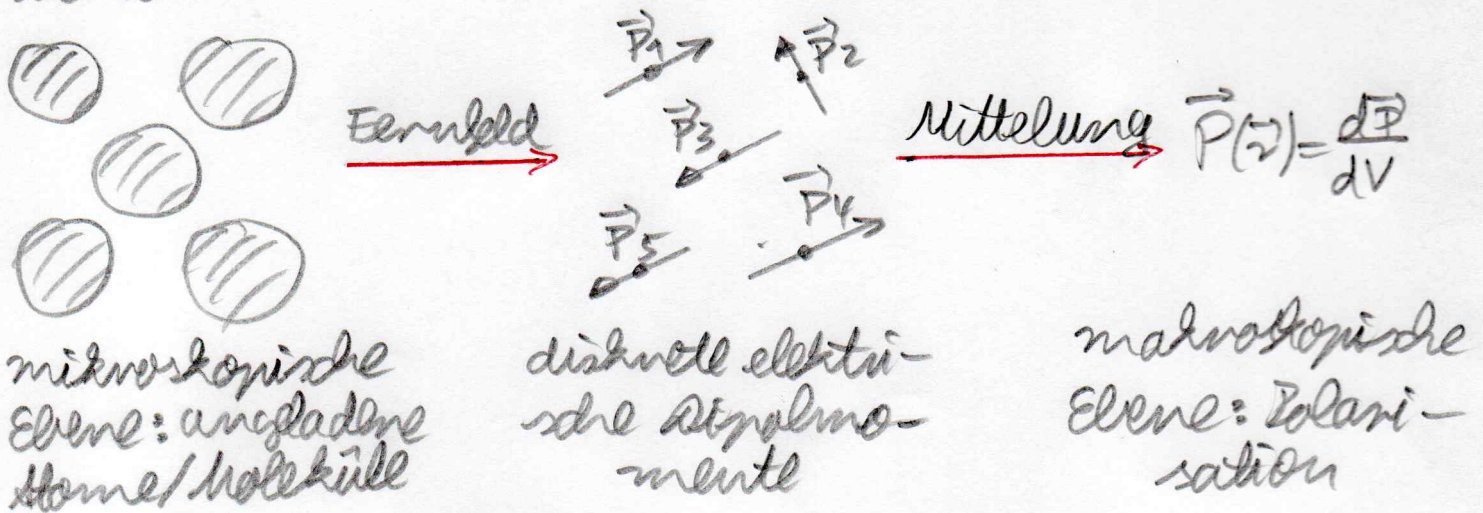 Fernfeld
p⃗1
p⃗2
p⃗3
p⃗4
p⃗5
Mittelung
P⃗(r⃗) = dp⃗/dV
mikroskopische
Ebene: ungeladene
Atome/Moleküle
diskrete elektri-
sche Dipolmo-
mente
makroskopische
Ebene: Polari-
sation